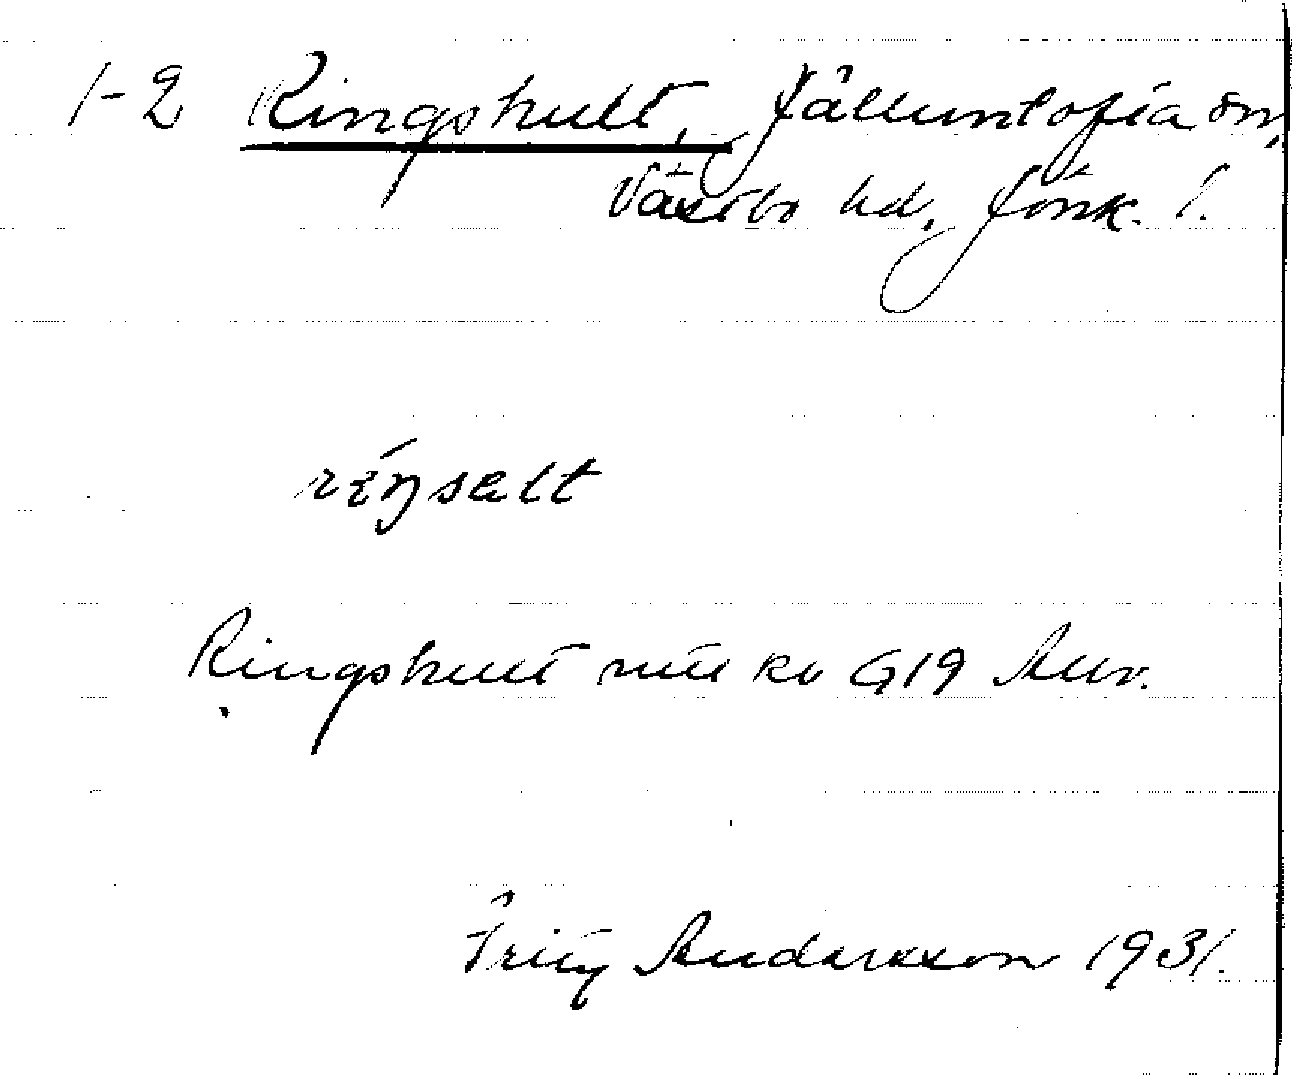 1-2 Ringshult, Jälluntofta sn,
Västbo hd, Jönk. l.
réŋsalt
Ringshult mtl kv G19 Allv.
Fritz Andersson 1931.